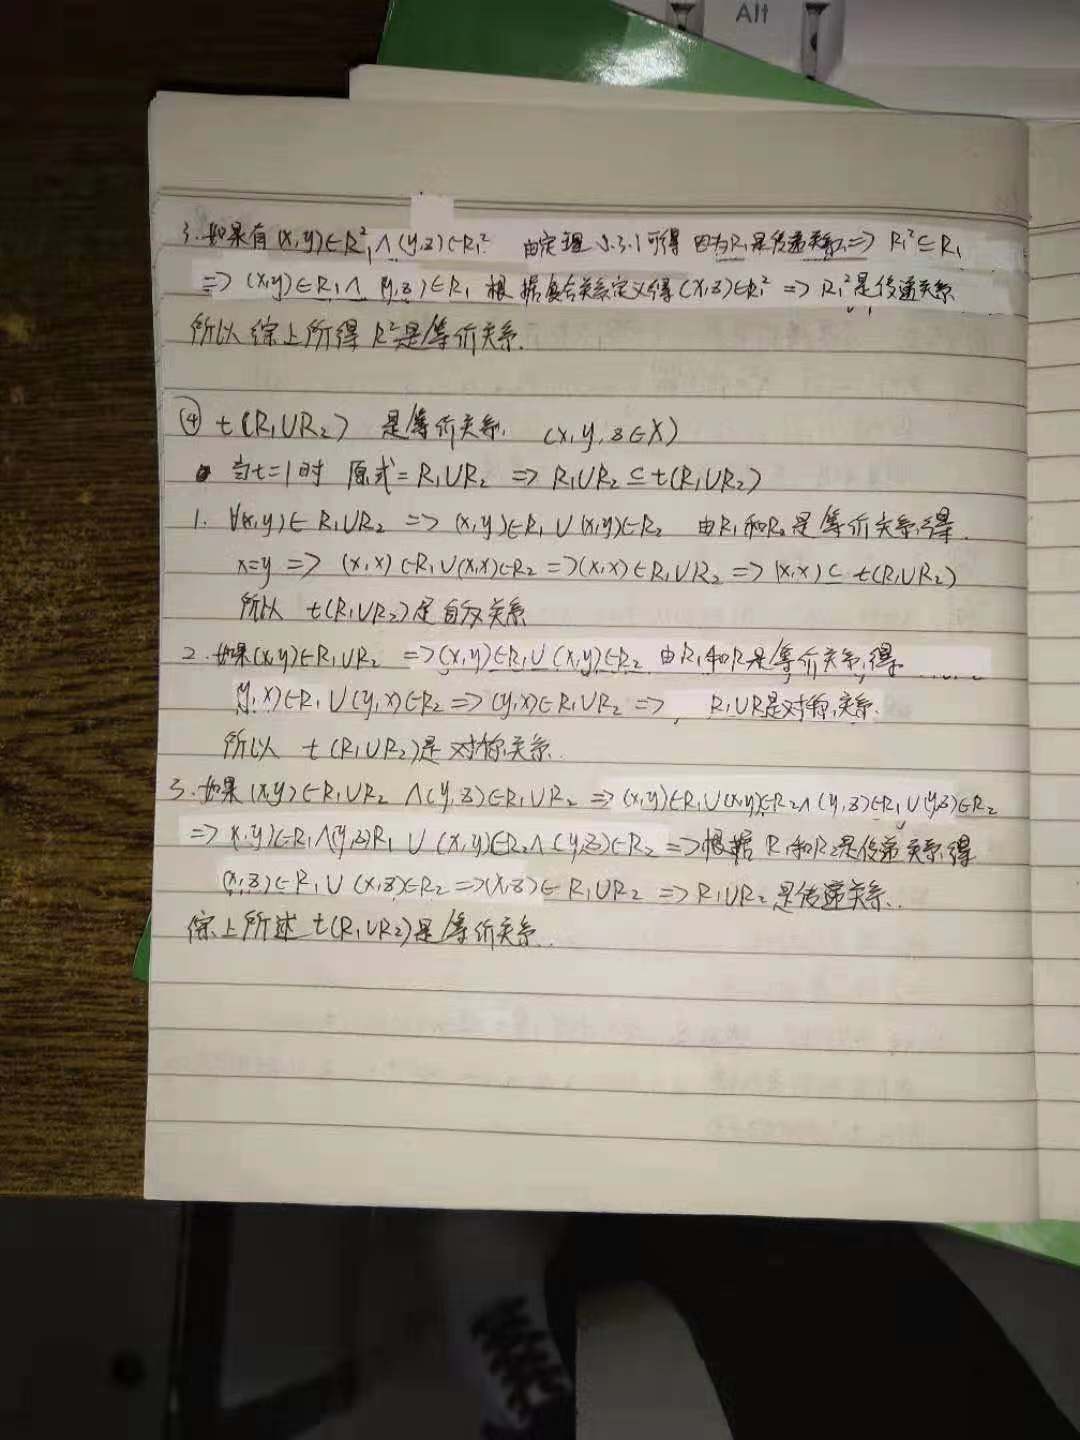 Alt
3.如果有(x,y)∈R₁²∧(y,z)∈R₁² 由定理5.3.1可得 因为R₁是传递关系=> R₁²⊆R₁
=> (x,y)∈R₁∧(y,z)∈R₁ 根据复合关系定义得(x,z)∈R₁² => R₁²是传递关系
所以综上所得R²是等价关系.
④ t(R₁∪R₂) 是等价关系. (x,y,z∈X)
当t=1时 原式=R₁∪R₂ => R₁∪R₂⊆t(R₁∪R₂)
1. ∀(x,y)∈R₁∪R₂ => (x,y)∈R₁∪(x,y)∈R₂ 由R₁和R₂是等价关系得.
x=y => (x,x)∈R₁∪(x,x)∈R₂=>(x,x)∈R₁∪R₂=>(x,x)⊆t(R₁∪R₂)
所以 t(R₁∪R₂)是自反关系
2.如果(x,y)∈R₁∪R₂ =>(x,y)∈R₁∪(x,y)∈R₂ 由R₁和R是等价关系,得.
(y,x)∈R₁∪(y,x)∈R₂=>(y,x)∈R₁∪R₂=>, R₁∪R是对称关系.
所以 t(R₁∪R₂)是对称关系.
3.如果(x,y)∈R₁∪R₂∧(y,z)∈R₁∪R₂ => (x,y)∈R₁∪(x,y)∈R₂∧(y,z)∈R₁∪(y,z)∈R₂
=>(x,y)∈R₁∧(y,z)R₁∪(x,y)∈R₂∧(y,z)∈R₂=>根据R₁和R₂是传递关系得
(x,z)∈R₁∪(x,z)∈R₂=>(x,z)∈R₁∪R₂=>R₁∪R₂是传递关系.
综上所述 t(R₁∪R₂)是等价关系.